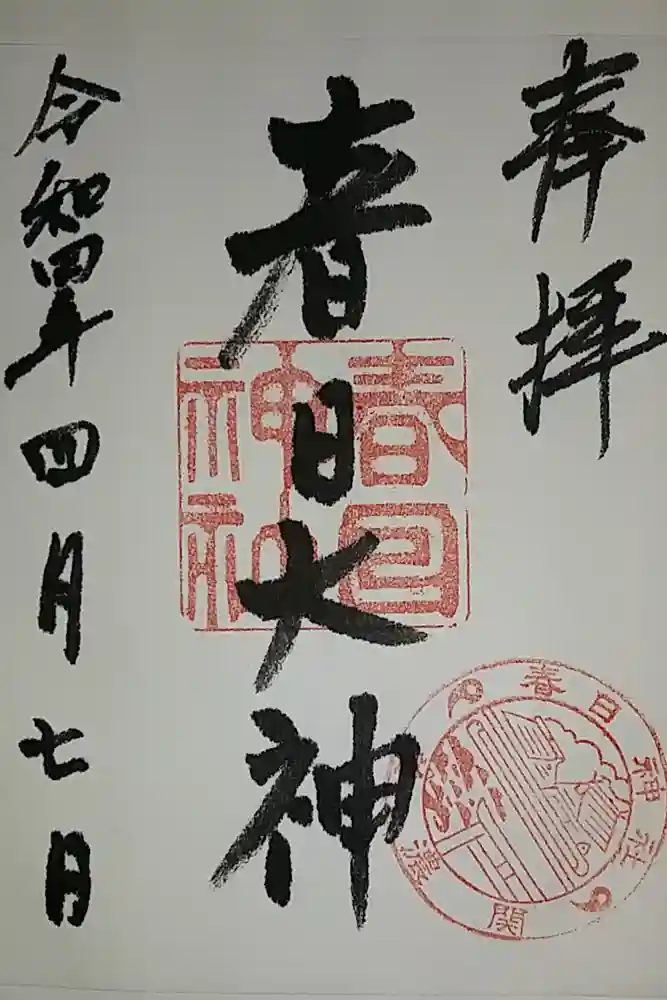 奉拝
春日大神
令和四年四月七日
春日神社
春日神社
美濃 関